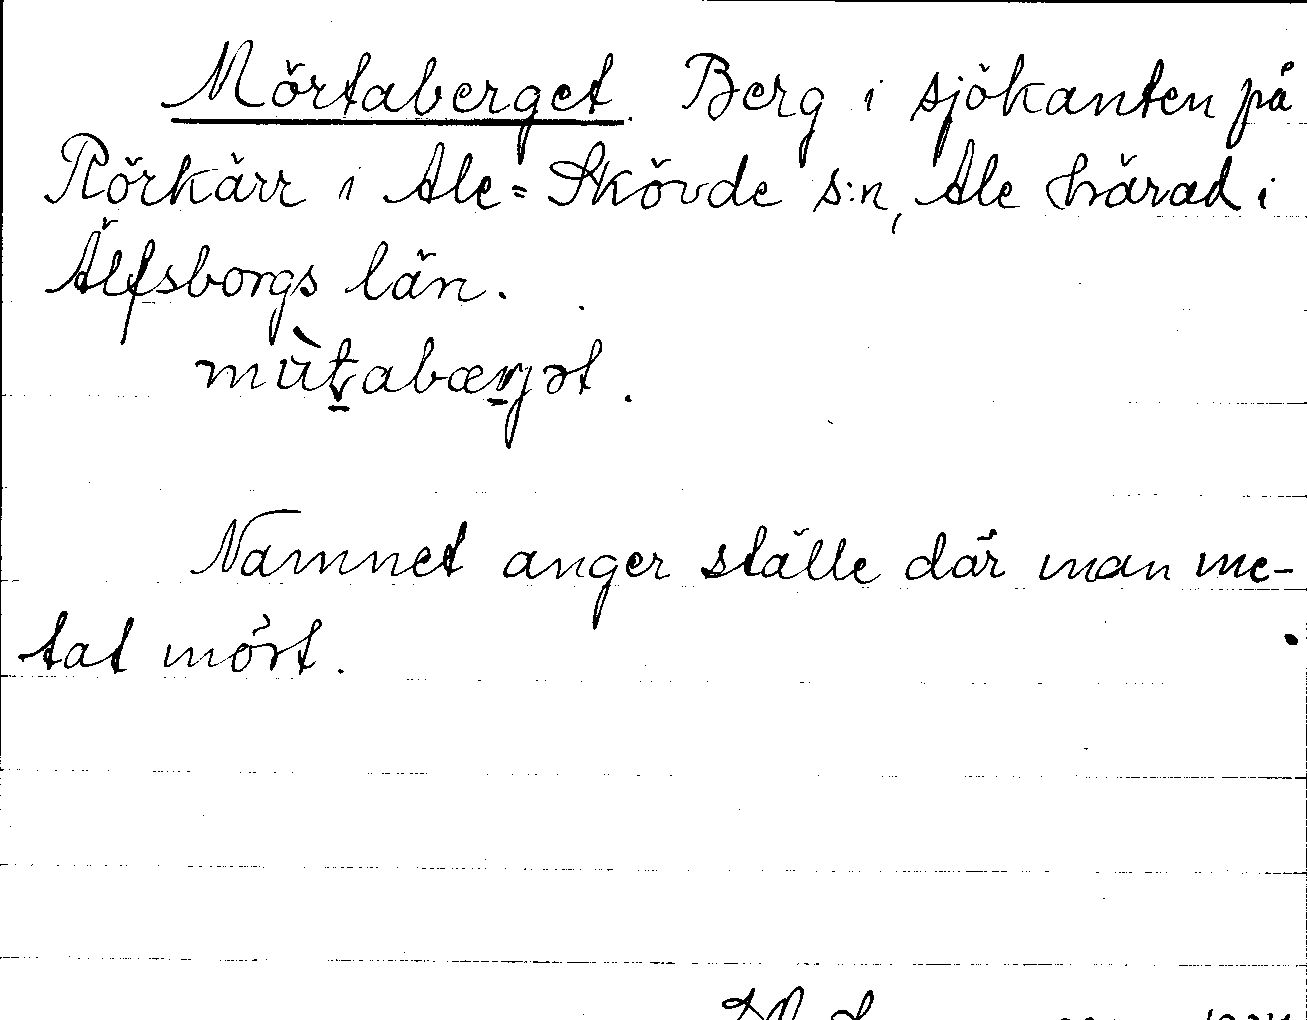 Mörtaberget. Berg i sjökanten på
Rörkärr i Ale=Skövde s:n, Ale härad i
Älfsborgs län.
mùt̠abæryət.
Namnet anger ställe där man me-
tat mört.